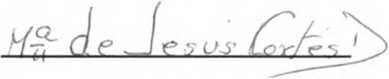 Mª de Jesus Cortés